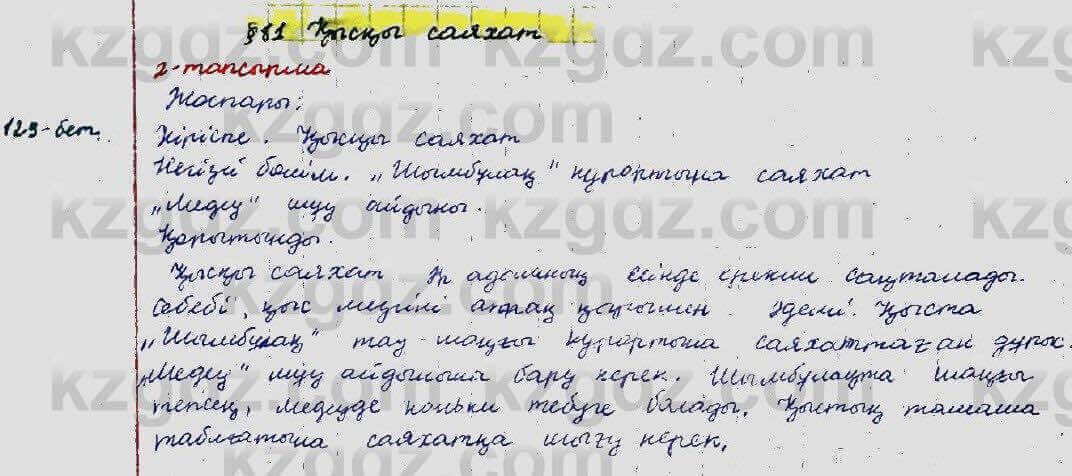 §81 Қысқы саяхат
2-тапсырма
Жоспары:
129-бет.
Кіріспе. Қысқы саяхат
Негізгі бөлім. „Шымбұлақ" курортына саяхат
„Медеу" мұз айдыны.
Қорытынды.
Қысқы саяхат әр адамның есінде ерекше сақталады.
Себебі, қыс мезгілі аппақ қарымен әдемі. Қыста
„Шымбұлақ" тау-шаңғы курортына саяхаттаған дұрыс.
„Медеу" мұз айдынына бару керек. Шымбұлақта шаңғы
тепсең, Медеуде коньки тебуге болады. Қыстың тамаша
табиғатына саяхатқа шығу керек.
kzgdz.com